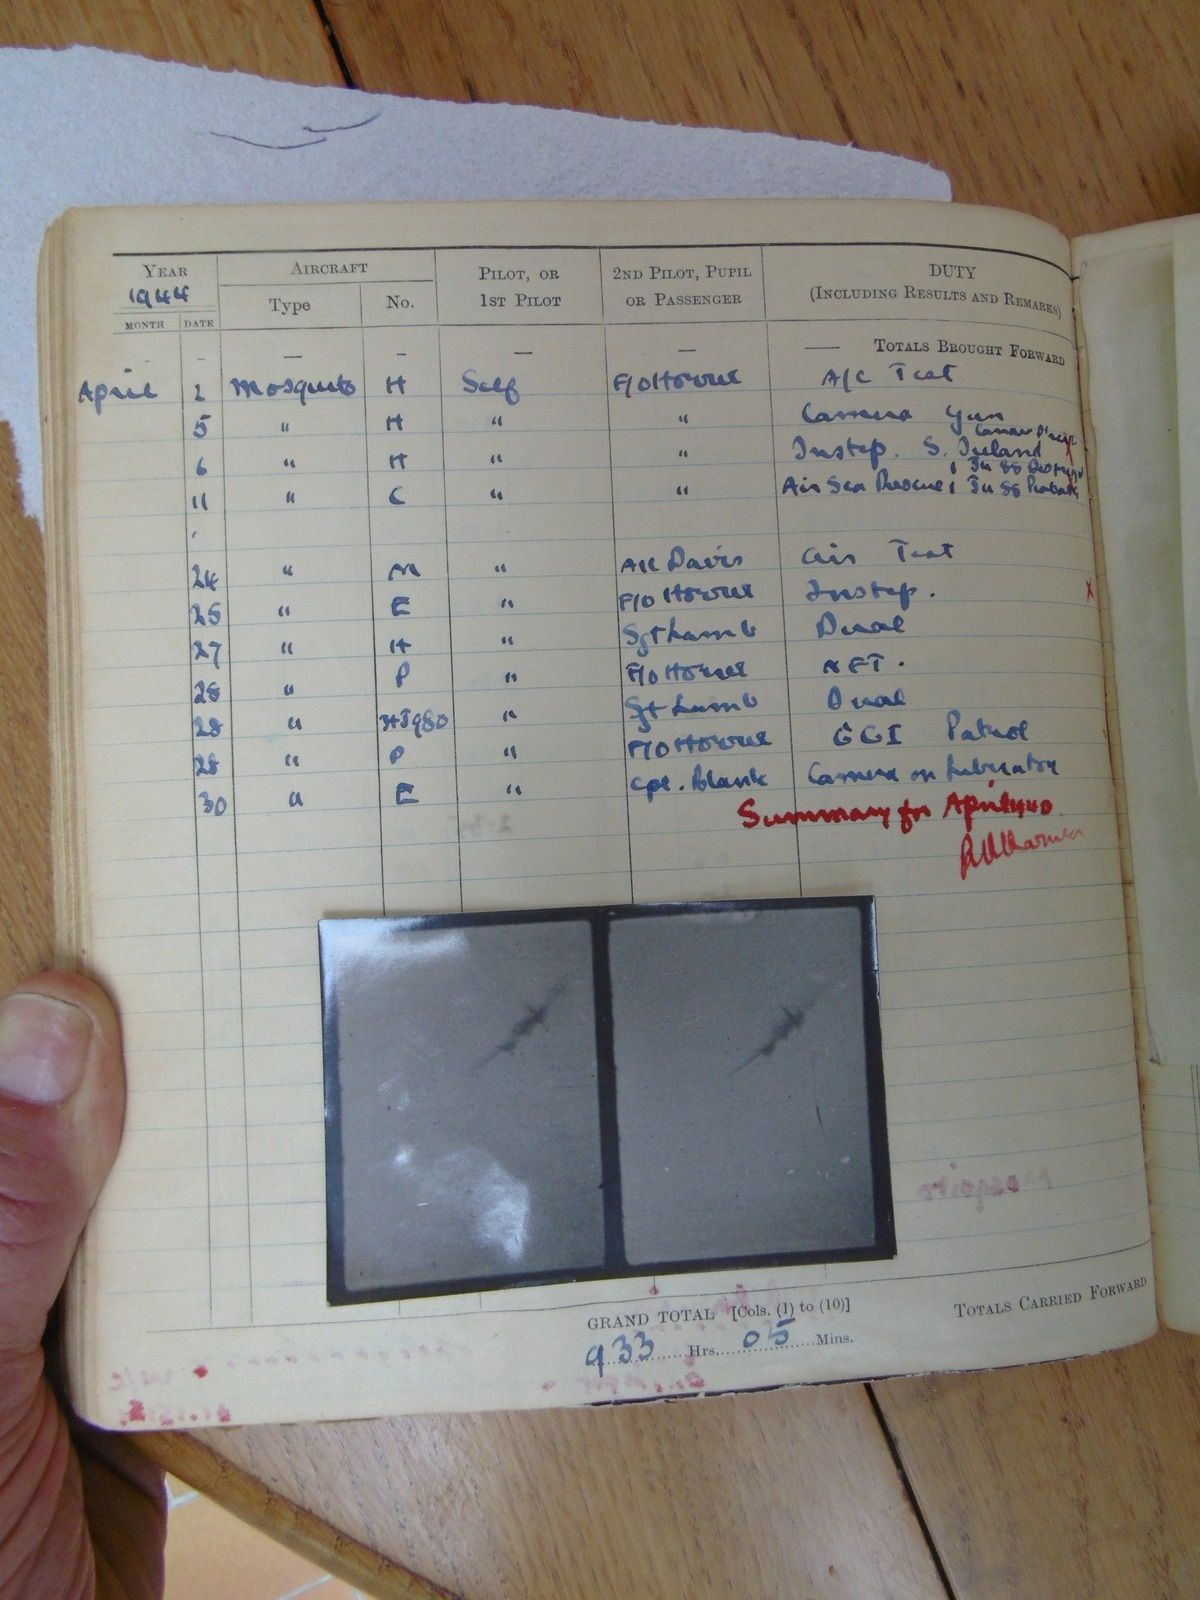 YEAR AIRCRAFT PILOT, OR 2ND PILOT, PUPIL DUTY
1944 Type No. 1ST PILOT OR PASSENGER (INCLUDING RESULTS AND REMARKS)
MONTH DATE
- — - — — — TOTALS BROUGHT FORWARD
April 2 Mosquito H Self F/O Horrex A/C Test
5 " H " " Camera gun
6 " H " " Instep. S. Ireland
1 Ju 88 Destroyed
11 " C " " Air Sea Rescue 1 Ju 88 Probable
24 " M " A/C Davis Air Test
25 " E " F/O Horrex Instep. x
27 " H " Sgt Lamb Dual
28 " P " F/O Horrex NFT.
28 " HJ980 " Sgt Lamb Dual
28 " P " F/O Horrex GCI Patrol
30 " E " Cpt. Blank Camera on Liberator
Summary for April
Mosquito
GRAND TOTAL [Cols. (1) to (10)] TOTALS CARRIED FORWARD
933 Hrs. 05 Mins.